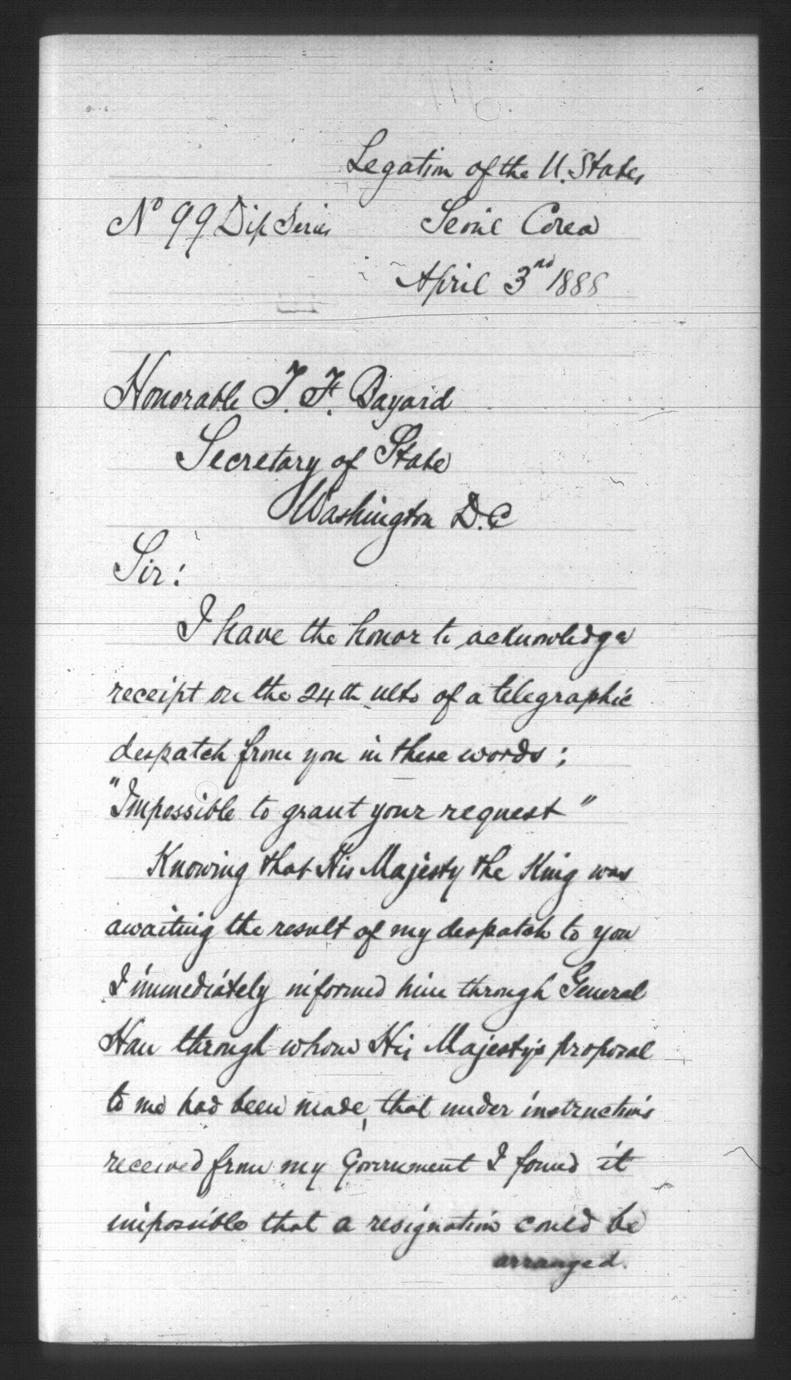 Legation of the U. States
No 99 Dip Series Seoul Corea
April 3rd 1888
Honorable T. F. Bayard
Secretary of State
Washington D.C
Sir:
I have the honor to acknowledge
receipt on the 24th ulto of a telegraphic
despatch from you in these words;
"Impossible to grant your request"
Knowing that His Majesty the King was
awaiting the result of my despatch to you
I immediately informed him through General
Han through whom His Majesty's proposal
to me had been made, that under instructions
received from my Government I found it
impossible that a resignation could be
arranged.